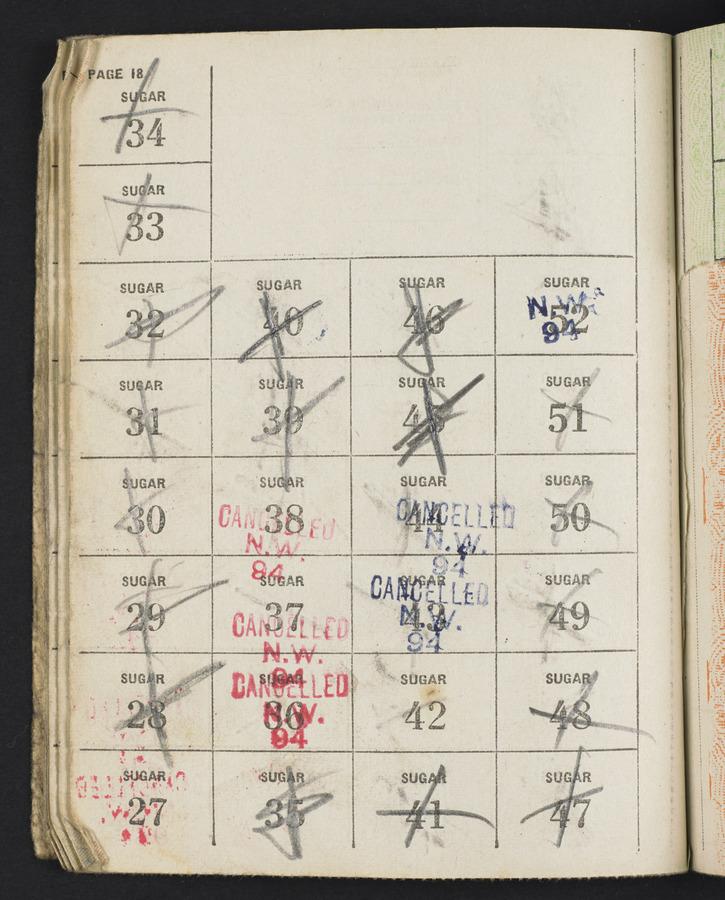 PAGE 18
SUGAR
34
SUGAR
33
SUGAR SUGAR SUGAR SUGAR
32 40 46 52
N.W.
94
SUGAR SUGAR SUGAR SUGAR
31 39 45 51
SUGAR SUGAR SUGAR SUGAR
30 38 44 50
CANCELLED CANCELLED
N.W. N.W.
94 94
SUGAR SUGAR SUGAR SUGAR
29 37 43 49
CANCELLED CANCELLED
N.W. N.W.
94 94
SUGAR SUGAR SUGAR SUGAR
28 36 42 48
CANCELLED
N.W.
94
SUGAR SUGAR SUGAR SUGAR
27 35 41 47